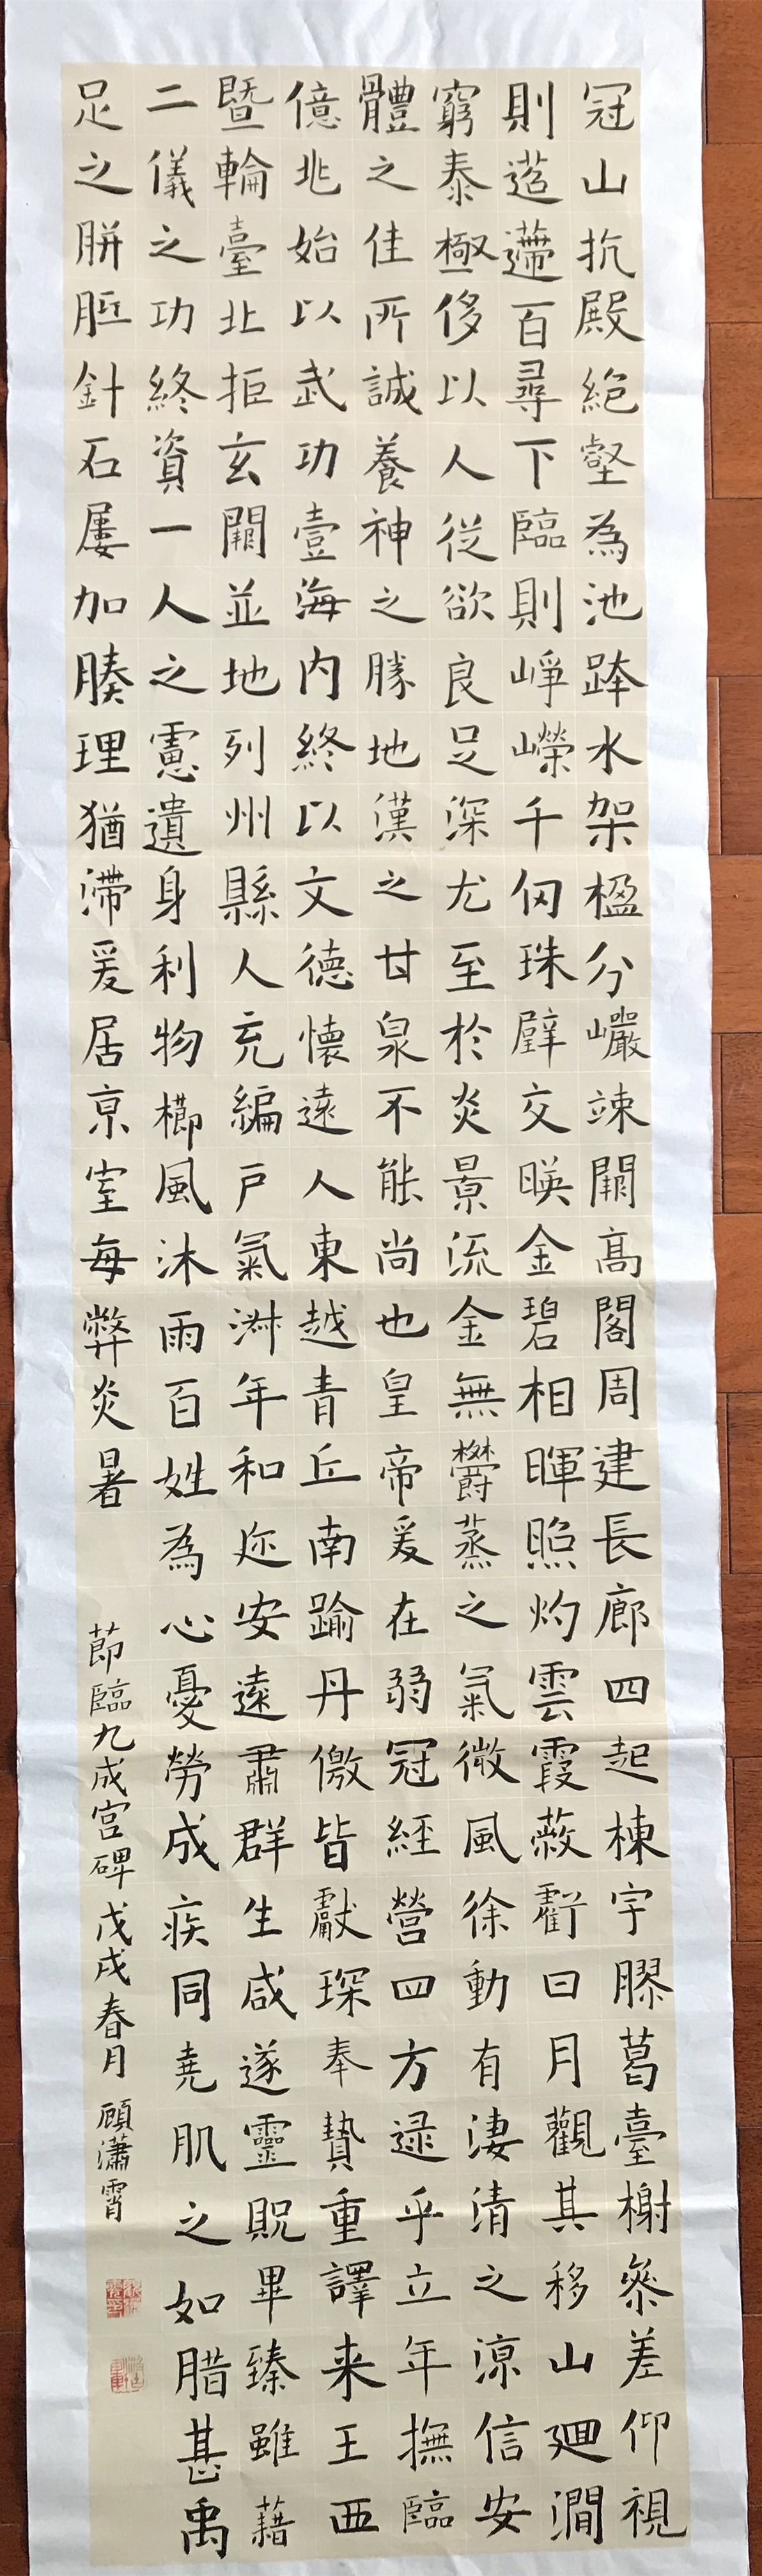 冠山抗殿絶壑為池跨水架楹分巖竦闕高閣周建長廊四起棟宇膠葛臺榭參差仰視
則迢遰百尋下臨則崢嶸千仞珠璧交暎金碧相暉照灼雲霞蔽虧日月觀其移山廻澗
窮泰極侈以人從欲良足深尤至於炎景流金無欝蒸之氣微風徐動有淒清之凉信安
體之佳所誠養神之勝地漢之甘泉不能尚也皇帝爰在弱冠經營四方逮乎立年撫臨
億兆始以武功壹海內終以文德懷遠人東越青丘南踰丹徼皆獻琛奉贄重譯来王西
暨輪臺北拒玄闕並地列州縣人充編戶氣淑年和迩安遠肅群生咸遂靈貺畢臻雖藉
二儀之功終資一人之慮遺身利物櫛風沐雨百姓為心憂勞成疾同堯肌之如腊甚禹
足之胼胝針石屢加腠理猶滯爰居京室每弊炎暑
節臨九成宮碑 戊戌春月 顧瀟霄